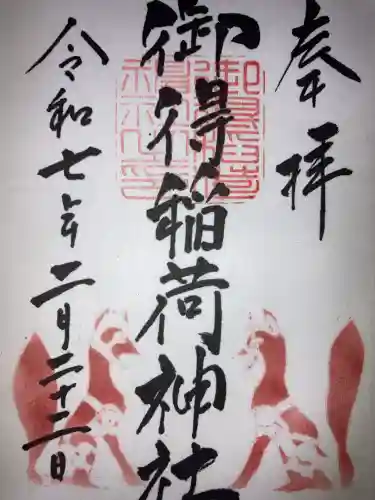 奉拝
御得稲荷神社
令和七年二月二十二日